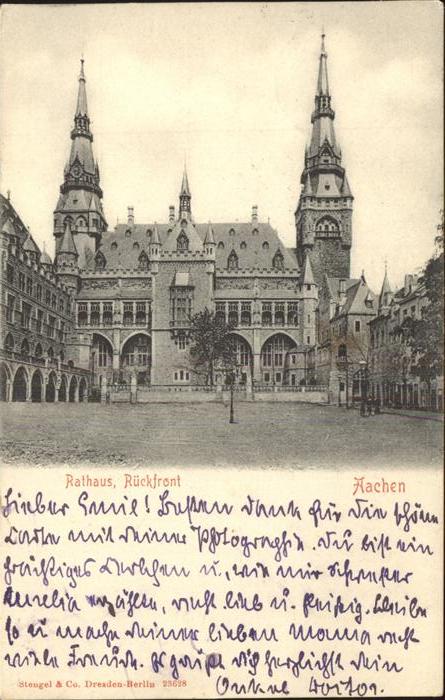 Rathaus, Rückfront
Aachen
Lieber Emil! Besten Dank für die schöne
Karte mit deiner Photographie. Du bist ein
prächtiges Kerlchen u., wie mir Schwester
Aurelia erzählte, recht lieb u. fleißig. Bleibe
so u mache deiner lieben Mama recht
viele Freude. Es grüßt dich herzlichst dein
Onkel
Stengel & Co. Dresden-Berlin 23628